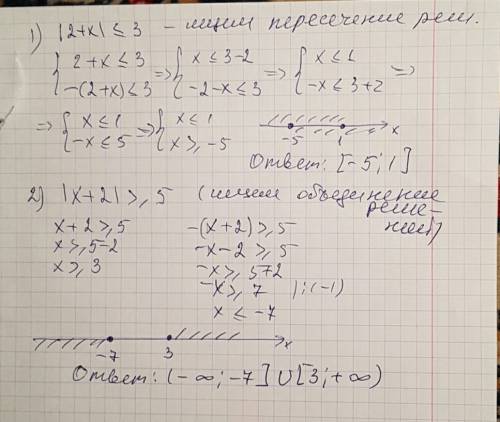 1) |2+x| ≤ 3 – ищем пересечение реш.
{ 2+x ≤ 3 => { x ≤ 3-2 => { x ≤ 1 =>
{ -(2+x) ≤ 3 { -2-x ≤ 3 { -x ≤ 3+2
=> { x ≤ 1 => { x ≤ 1
{ -x ≤ 5 { x ≥ -5
-5 1 x
Ответ: [-5; 1]
2) |x+2| ≥ 5 (ищем объединение
реше-
ний)
x+2 ≥ 5 -(x+2) ≥ 5
x ≥ 5-2 -x-2 ≥ 5
x ≥ 3 -x ≥ 5+2
-x ≥ 7 | :(-1)
x ≤ -7
-7 3 x
Ответ: (-∞; -7] ∪ [3; +∞)